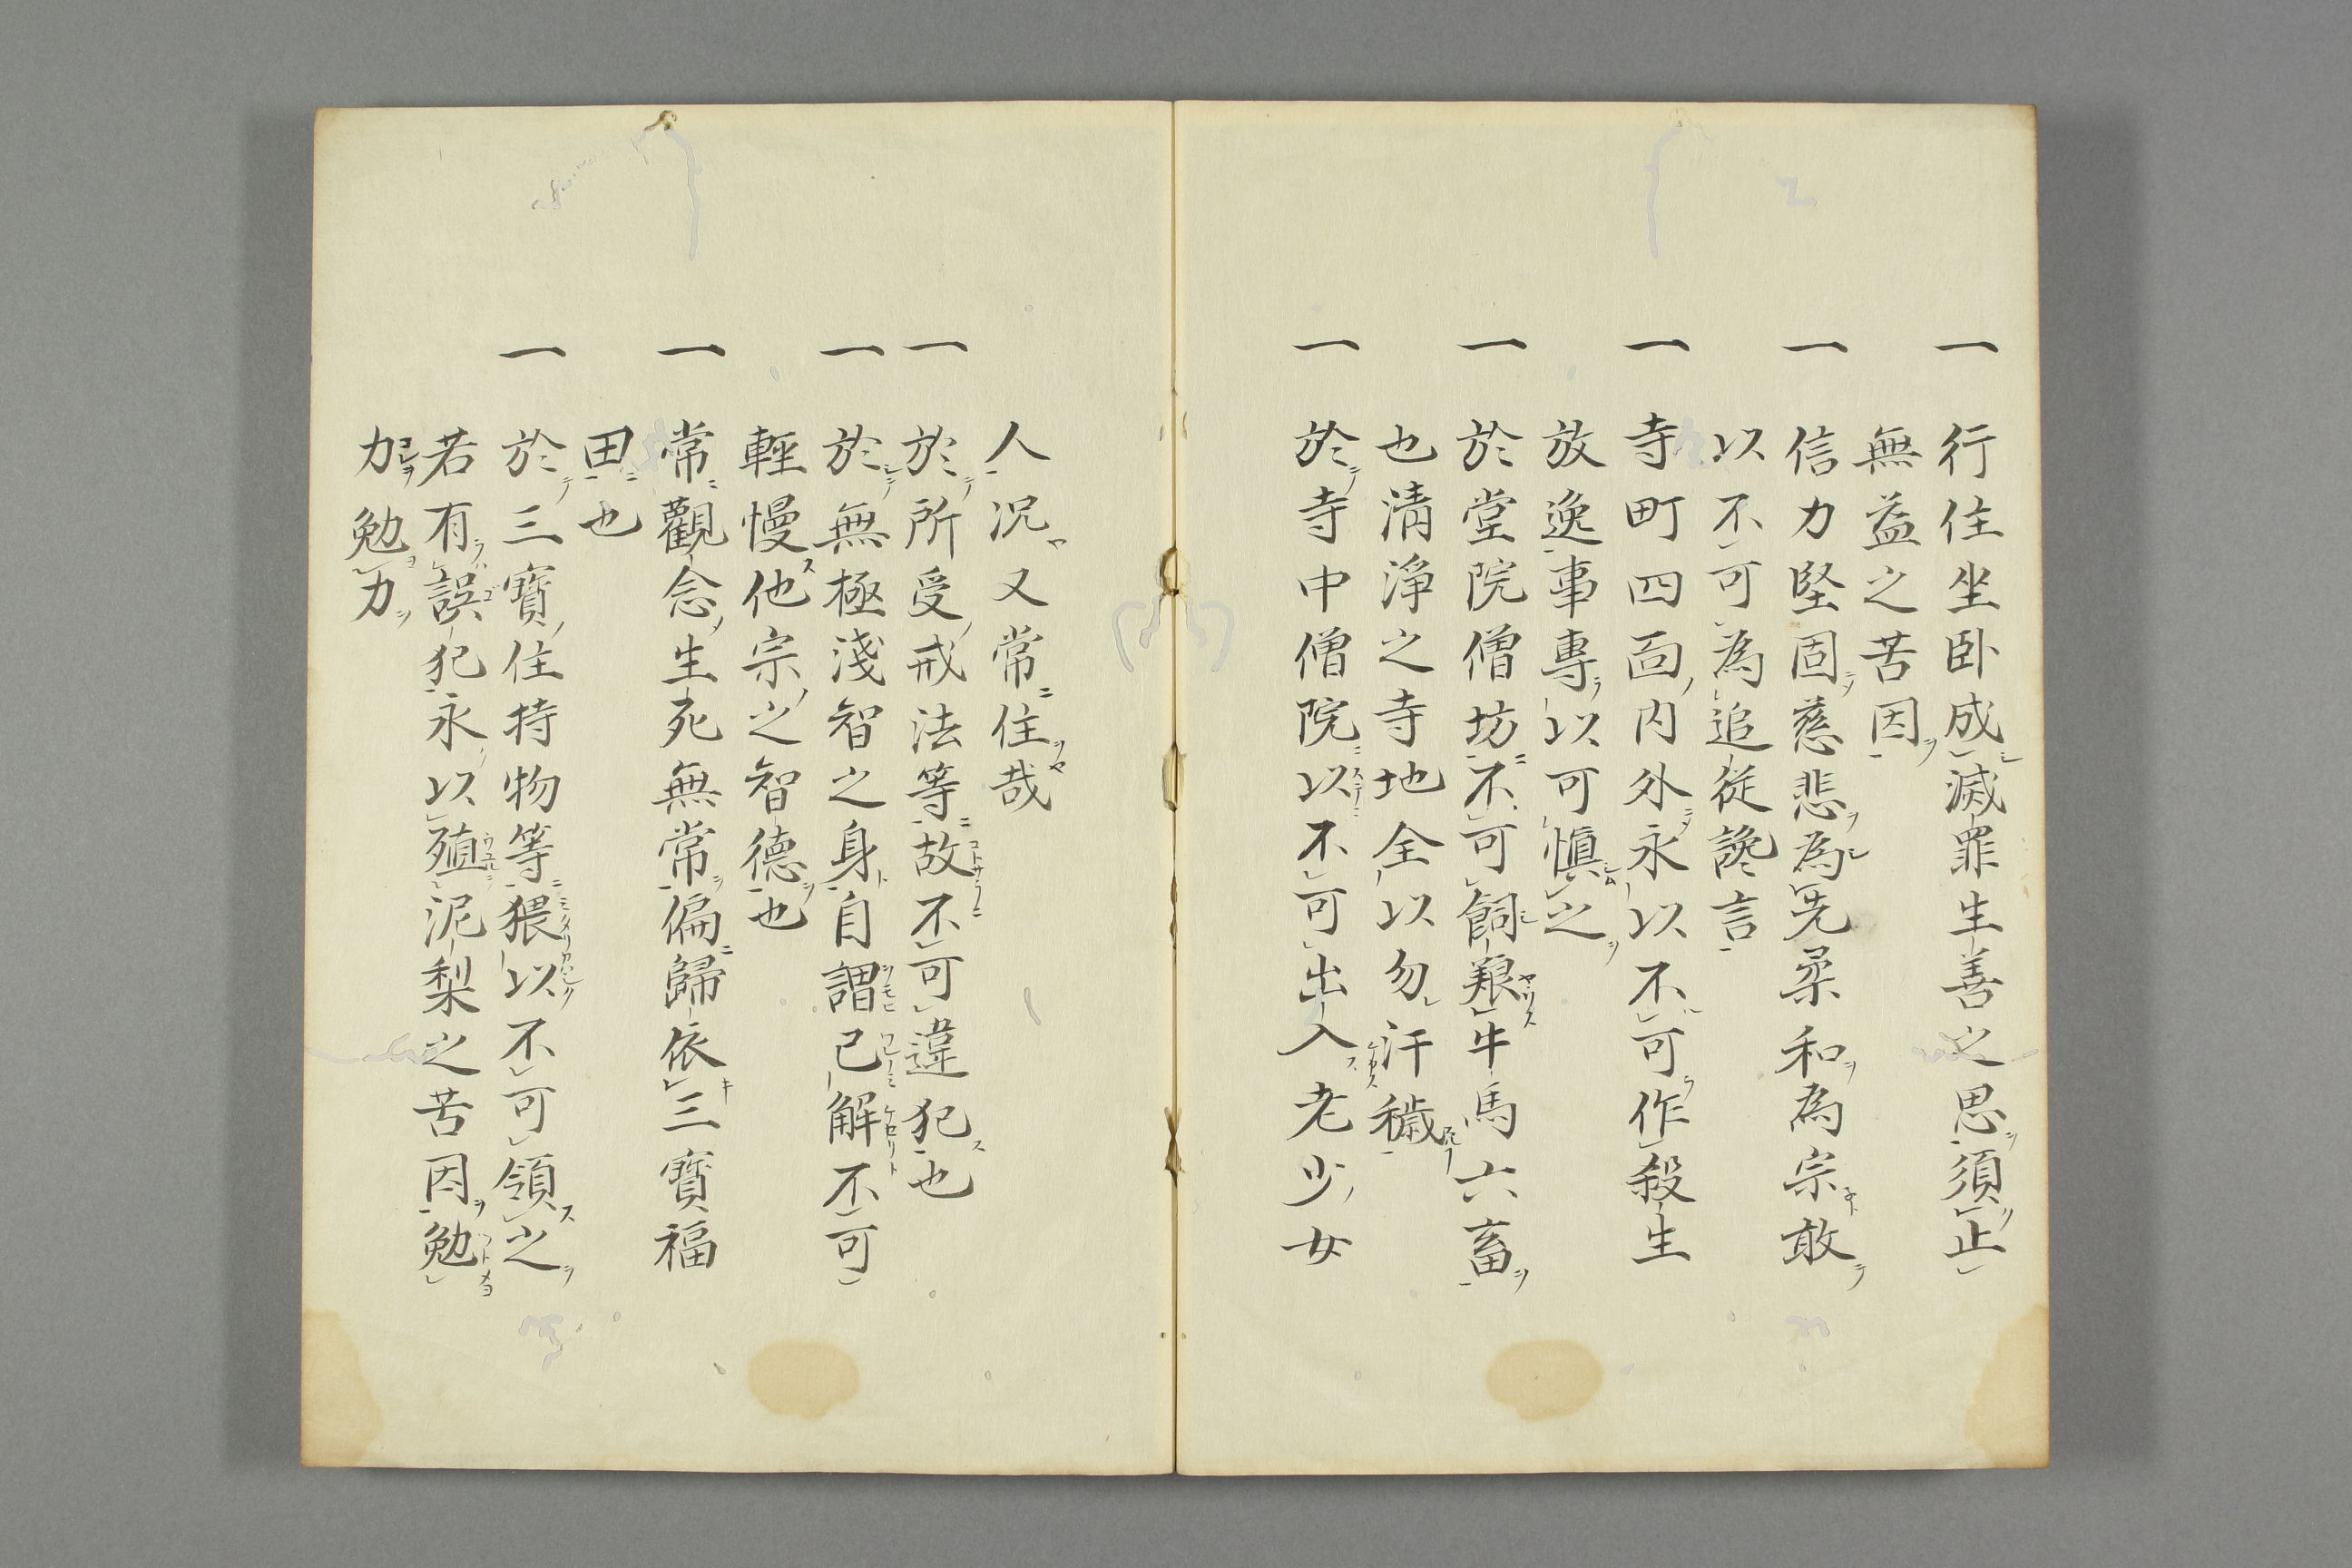 一 行住坐卧成滅罪生善之思須止
無益之苦因
一 信力堅固慈悲為先柔和為宗敢
以不可為追従讒言
一 寺町四面内外永以不可作殺生
放逸事專以可慎之
一 於堂院僧坊不可飼艱牛馬六畜
也清淨之寺地全以勿汗穢
一 於寺中僧院以不可出入老少女
人况又常住哉
一 於所受戒法等故不可違犯也
一 於無極淺智之身自謂己解不可
輕慢他宗之智德也
一 常觀念生死無常偏歸依三寶福
田也
一 於三寶住持物等猥以不可領之
若有誤犯永以殖泥梨之苦因勉
力勉力